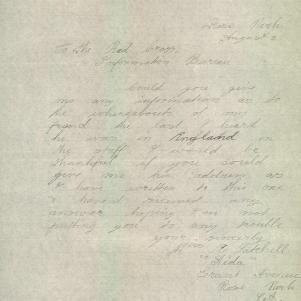 Rose Park
August 2
To The Red Cross
Information Bureau
Could you give
me any information as to
the whereabouts of my
friend the last I heard
he was in England on
the staff I would be
thankful if you could
give me his address as
I have written to this one
& haven't received any
answer hoping I'm not
putting you to any trouble
yours sincerely
Tatchell
"Aida"
Grant Avenue
Rose Park